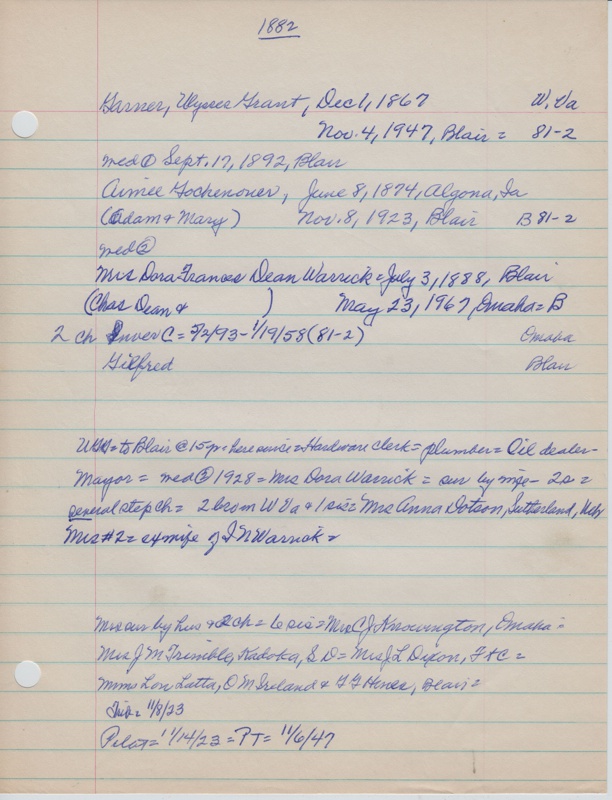 1882
Garner, Ulysses Grant, Dec 1, 1867 W. Va
Nov. 4, 1947, Blair = 81-2
med ① Sept. 17, 1892, Blair
Aimee Gochenouer, June 8, 1874, Algona, Ia
(Adam & Mary) Nov. 8, 1923, Blair B 81-2
med ②
Mrs Dora Frances Dean Warrick = July 3, 1888, Blair
(Chas Dean & ) May 23, 1967, Omaha = B
2 ch Inver C = 5/2/93 - 1/19/58 (81-2) Omaha
Gilfred Blair
UGG = to Blair @ 15 yr = here since = Hardware clerk = plumber = Oil dealer -
Mayor = med ② 1928 = Mrs Dora Warrick = sur by wife - 2s =
several step ch = 2 bro in W Va & 1 sis = Mrs Anna Dotson, Sutherland, Nebr
Mrs #2 = ex wife of I N Warrick =
Mrs sur by hus & 2 ch = 6 sis = Mrs C J Knowington, Omaha =
Mrs J M Trimble, Kadoka, S D = Mrs J L Dixon, Ft C =
Mmes Lon Latta, O M Ireland & F F Hines, Blair =
Trib = 11/8/23
Pilot = 11/14/23 = PT = 11/6/47